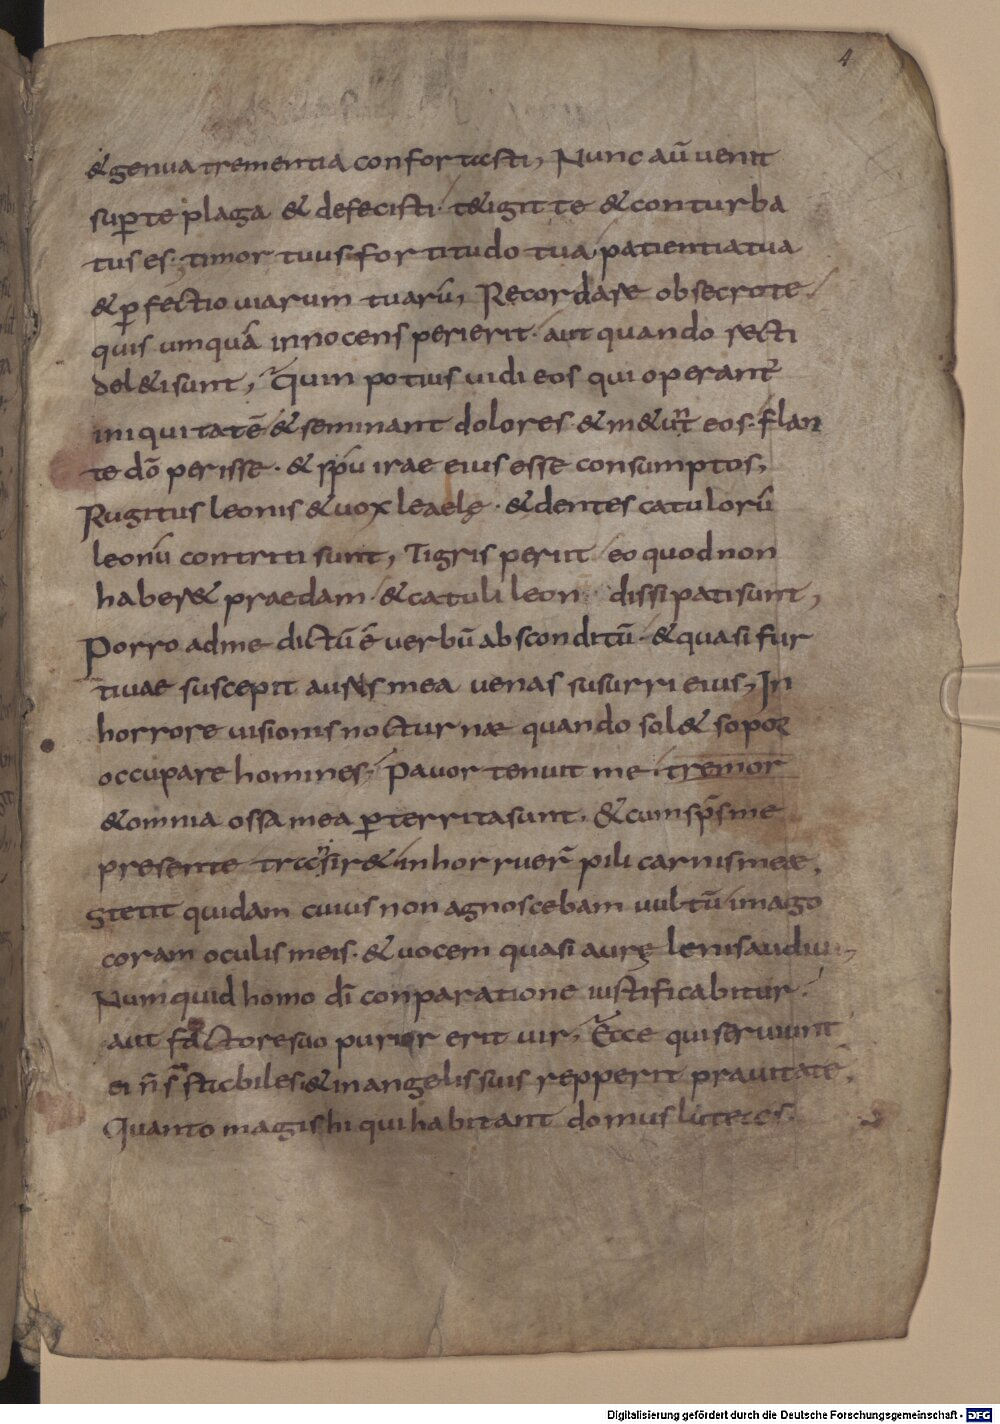 4
& genua trementia confortasti, Nunc aū uenit
sup te plaga & defecisti. t&igit te & conturba
tus es. timor tuus. fortitudo tua patientia tua
& pfectio uiarum tuarū, Recordare obsecro te.
quis umquā innocens perierit. aut quando recti
del&i sunt, Quin potius uidi eos qui operant̄
iniquitatē & seminant dolores & m&unt̄ eos. flan
te dō perisse. & spū irae eius esse consumptos,
Rugitus leonis & uox leaelę. & dentes catulorū
leonū contriti sunt, Tigris periit eo quod non
haber& praedam & catuli leon dissipati sunt,
Porro ad me dictū ē uerbū absconditū & quasi fur
tiuae suscepit auris mea uenas susurri eius, In
horrore uisionis nocturnae quando sol& sopor
occupare homines, Pauor tenuit me tremor
& omnia ossa mea pterrita sunt. & cum sps̄ me
presente transir& inhorruer̄ pili carnis meae,
Stetit quidam cuius non agnoscebam uultū imago
coram oculis meis. & uocem quasi aurę lenis audiui,
Numquid homo dī conparatione iustificabitur.
aut factore suo purior erit uir, Ecce qui seruiunt
ei n̄ s̄ stabiles. & in angelis suis repperit prauitatē,
Quanto magis hi qui habitant domus luteas.
Digitalisierung gefördert durch die Deutsche Forschungsgemeinschaft - DFG